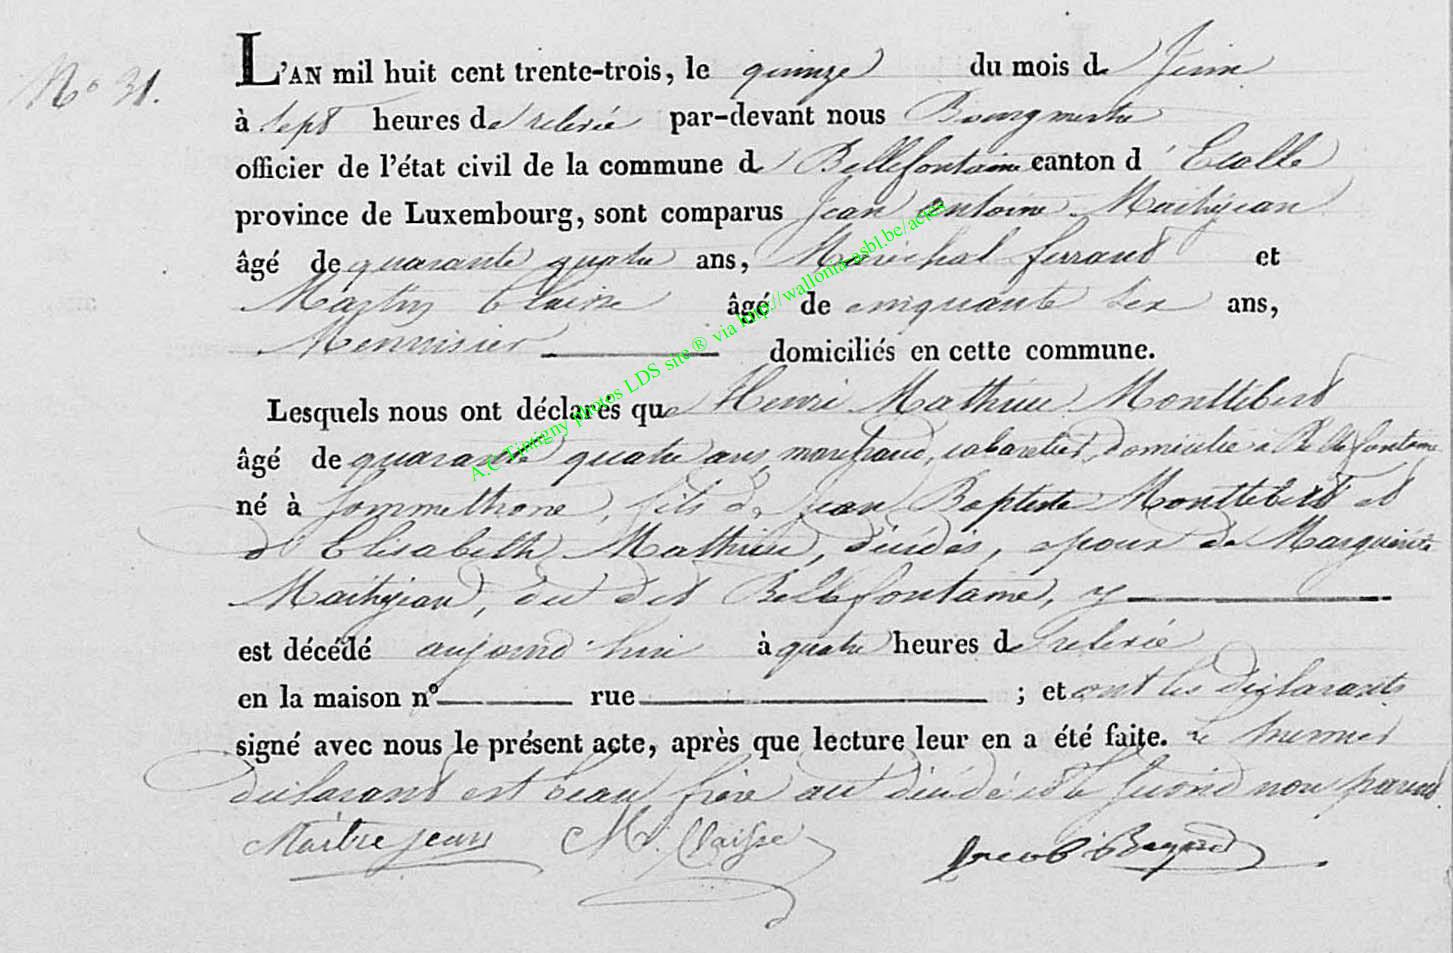 N° 31.
L'AN mil huit cent trente-trois, le quinze du mois de Juin
à sept heures de relevée par-devant nous Bourgmestre
officier de l'état civil de la commune de Bellefontaine canton d' Etalle
province de Luxembourg, sont comparus Jean antoine Maitrejean
âgé de quarante quatre ans, Maréchal ferrant et
Martin Claisse âgé de cinquante six ans,
Menuisier domiciliés en cette commune.
Lesquels nous ont déclarés que Henri Mathieu Monttibert
âgé de quarante quatre ans, marchand, cabaretier, domicilié à Bellefontaine
né à Sommethone, fils de Jean Baptiste Monttibert et
d'Elisabeth Mathieu, décédés, époux de Marguerite
Maitrejean, du dit Bellefontaine, y
est décédé aujourd'hui à quatre heures de relevée
en la maison n° rue ; et ont les déclarants
signé avec nous le présent acte, après que lecture leur en a été faite. Le premier
déclarant est beau frère au décédé et le second non parent
Maitre jean M. Claisse
A.C Tintigny photos LDS site ® via http://wallonia-asbl.be/actes